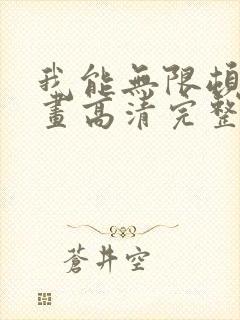 我能無限頓
畫高清完整
蒼井空